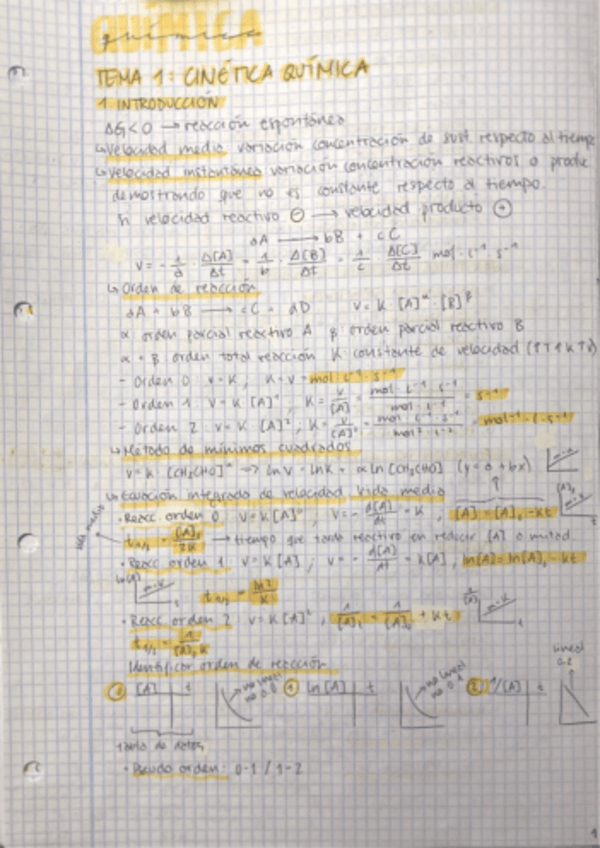 QUÍMICA
química
TEMA 1: CINÉTICA QUÍMICA
1 INTRODUCCIÓN
ΔG<0 → reacción espontánea
↳ Velocidad media: variación concentración de sust. respecto al tiempo
↳ Velocidad instantánea variación concentración reactivos o produc
demostrando que no es constante respecto al tiempo.
velocidad reactivo ⊖ → velocidad producto ⊕
aA → bB + cC
V = - 1/a · Δ[A]/Δt = 1/b · Δ[B]/Δt = 1/c · Δ[C]/Δt mol · L⁻¹ · s⁻¹
↳ Orden de reacción
aA + bB → cC + dD V = K [A]^α · [B]^β
α orden parcial reactivo A β orden parcial reactivo B
α + β orden total reacción K: constante de velocidad (↑T↑K↑V)
- Orden 0: V = K ; K = V = mol · L⁻¹ · s⁻¹
- Orden 1: V = K [A]¹ ; K = V/[A] = mol · L⁻¹ · s⁻¹ / mol · L⁻¹ = s⁻¹
- Orden 2: V = K [A]² ; K = V/[A]² = mol · L⁻¹ · s⁻¹ / mol² · L⁻² = mol⁻¹ · L · s⁻¹
↳ Método de mínimos cuadrados
V = K · [CH₃CHO]^α → ln V = ln K + α ln [CH₃CHO] (y = a + bx)
↳ Ecuación integrada de velocidad. Vida media
· Reacc. orden 0 V = K [A]⁰ ; V = - d[A]/dt = K , [A] = [A]₀ - kt
vida media
t₁/₂ = [A]₀/2K → tiempo que tarda reactivo en reducir [A] a mitad.
· Reacc. orden 1 V = K [A] ; V = - d[A]/dt = K[A] , ln[A] = ln[A]₀ - kt
ln[A]
t₁/₂ = ln2/K
· Reacc. orden 2 V = K [A]² , 1/[A] = 1/[A]₀ + Kt
t₁/₂ = 1/[A]₀ K
Identificar orden de reacción
0 [A] t no lineal no 0 1 ln [A] t no lineal 2 1/[A] t lineal
tabla de datos
· Pseudo orden: 0-1 / 1-2
1